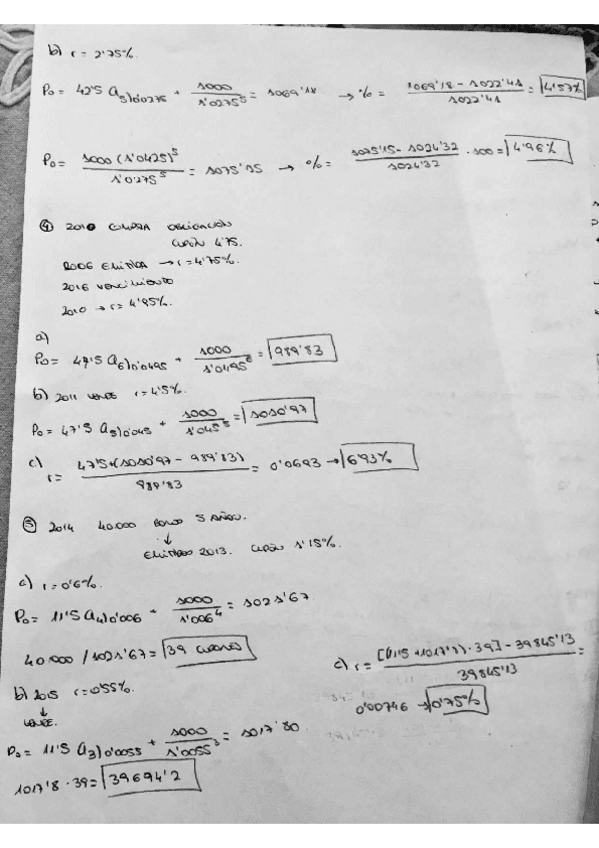 b) r = 2'75%.
P0 = 42'5 a5)0'0275 + 1000 / 1'0275^5 = 1069'18 → % = 1069'18 - 1022'41 / 1022'41 = 4'57%
P0 = 1000 (1'0425)^5 / 1'0275^5 = 1075'15 → % = 1075'15 - 1024'32 / 1024'32 · 100 = 4'96%
④ 2010 COMPRA OBLIGACIÓN
CUPÓN 4'75.
2006 EMITIDA → r = 4'75%.
2016 VENCIMIENTO
2010 → r = 4'95%.
a)
P0 = 47'5 a6)0'0495 + 1000 / 1'0495^6 = 989'83
b) 2011 VENDE r = 4'5%.
P0 = 47'5 a5)0'045 + 1000 / 1'045^5 = 1010'97
c)
r = 47'5 + (1010'97 - 989'83) / 989'83 = 0'0693 → 6'93%
⑤ 2014 40.000 BONOS 5 AÑOS.
↓
EMITIDO 2013. CUPÓN 1'15%.
r = 0'6%.
P0 = 11'5 a4)0'006 + 1000 / 1'006^4 = 1021'67
40.000 / 1021'67 = 39
b) 2015 r = 0'55%.
↓
VENDE.
P0 = 11'5 a3)0'0055 + 1000 / 1'0055^3 = 1017'80
1017'8 · 39 = 39694'2
c) r = [(11'5 + 1017'8) · 39] - 39845'13 / 39845'13 =
0'00746 → 0'75%